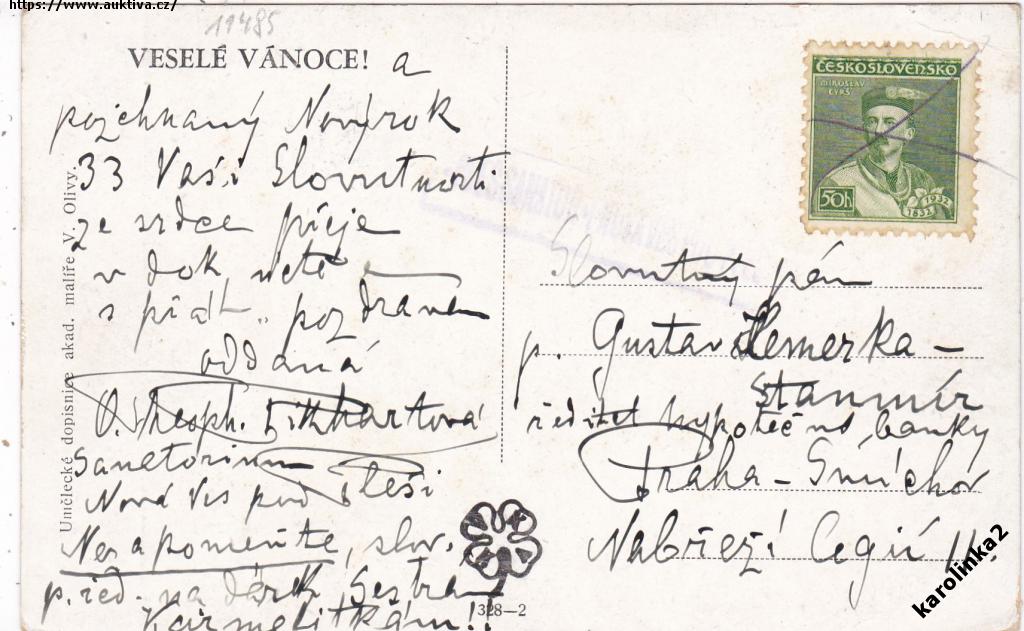 https://www.auktiva.cz/
11485
VESELÉ VÁNOCE! a
požehnaný Nový rok
33 Vaší Slovutnosti
ze srdce přeje
v dok. úctě
s přát. pozdravem
oddaná
O. Theoph. Linhartová
Sanatorium
Nová Ves pod Pleší
Nezapomeňte, slov.
p. řed. na dárek Sestrám
Karmelitkám!!
Umělecké dopisnice akad. malíře V. Olivy.
328—2
ČESKOSLOVENSKO
MIROSLAV
TYRŠ
50h
1832
1932
Slovutný pán
p. Gustav Hemerka –
Stanmír
ředitel hypoteční banky
Praha – Smíchov
Nábřeží Legií 11
karolinka2